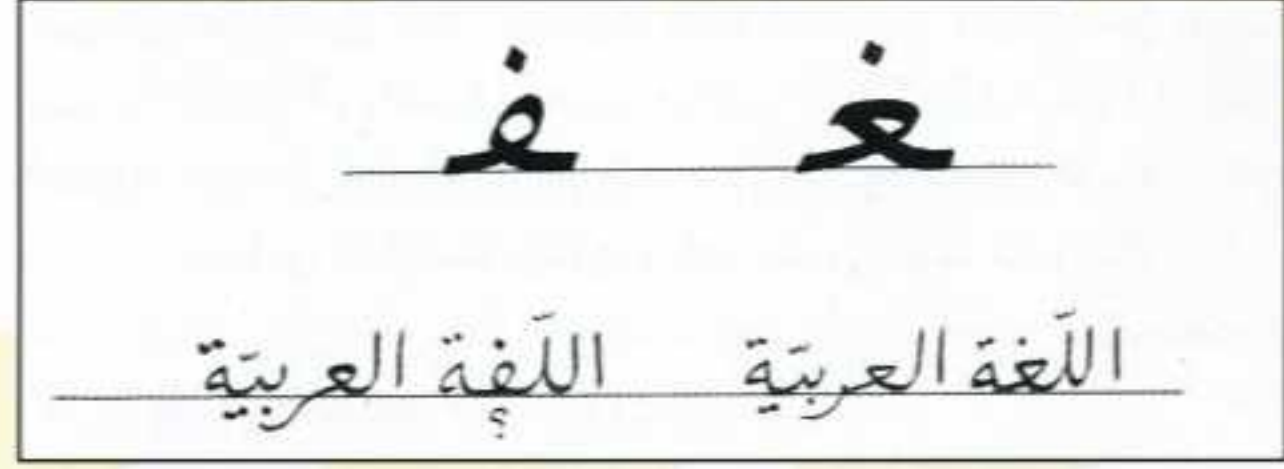 غ ف
اللّغة العربيّة اللّفة العربيّة
؟